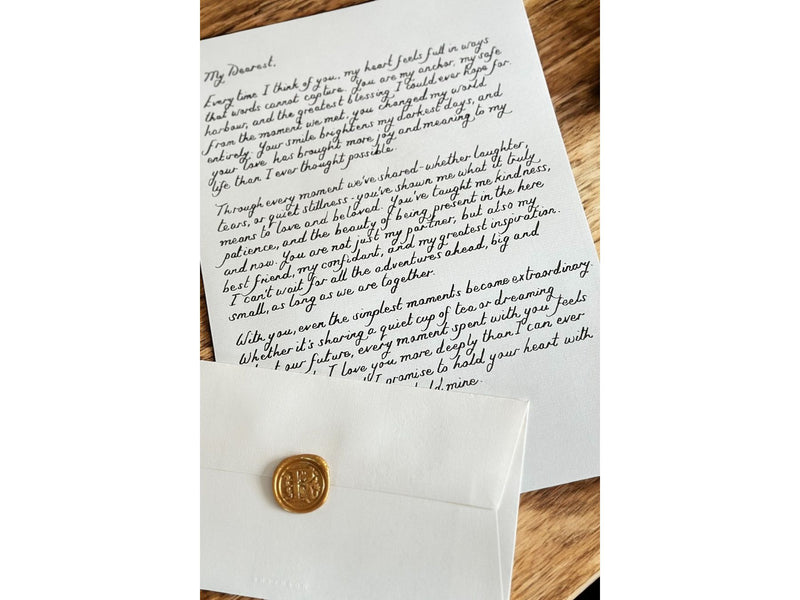 My Dearest,
Every time I think of you, my heart feels full in ways
that words cannot capture. You are my anchor, my safe
harbour, and the greatest blessing I could ever hope for.
From the moment we met, you changed my world
entirely. Your smile brightens my darkest days, and
your love has brought more joy and meaning to my
life than I ever thought possible.
Through every moment we've shared - whether laughter,
tears, or quiet stillness - you've shown me what it truly
means to love and be loved. You've taught me kindness,
patience, and the beauty of being present in the here
and now. You are not just my partner, but also my
best friend, my confidant, and my greatest inspiration.
I can't wait for all the adventures ahead, big and
small, as long as we are together.
With you, even the simplest moments become extraordinary.
Whether it's sharing a quiet cup of tea or dreaming
our future, every moment spent with you feels
I love you more deeply than I can ever
I promise to hold your heart with
mine.